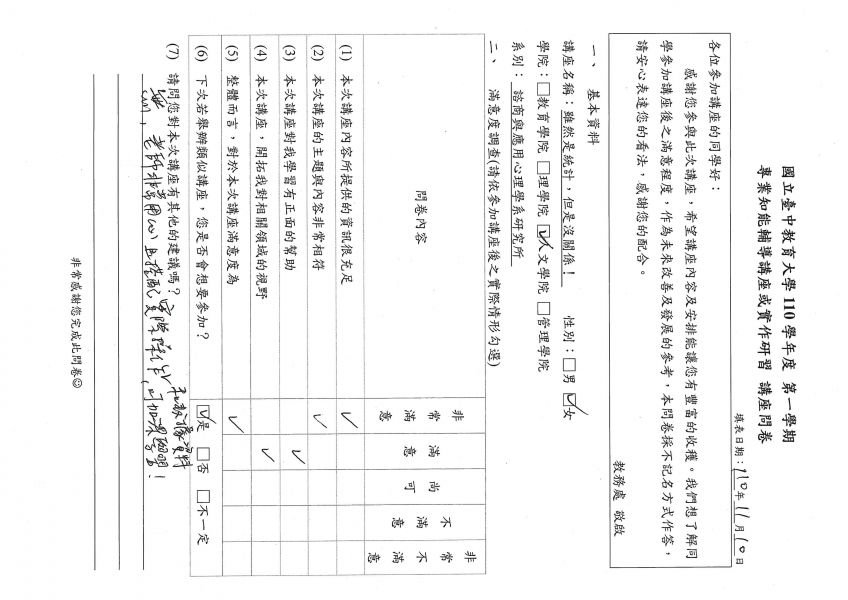 國立臺中教育大學 110 學年度 第一學期
專業知能輔導講座或實作研習 講座問卷
填表日期：110年11月10日
各位參加講座的同學好：
感謝您參與此次講座，希望講座內容及安排能讓您有豐富的收獲。我們想了解同
學參加講座後之滿意程度，作為未來改善及發展的參考，本問卷採不記名方式作答，
請安心表達您的看法，感謝您的配合。
教務處 敬啟
一、 基本資料
講座名稱：雖然是統計，但是沒關係！ 性別：□男 ☑女
學院：□教育學院 □理學院 ☑人文學院 □管理學院
系別： 諮商與應用心理學系研究所
二、 滿意度調查(請依參加講座後之實際情形勾選)
問卷內容 非常滿意 滿意 尚可 不滿意 非常不滿意
(1) 本次講座內容所提供的資訊很充足 ✓
(2) 本次講座的主題與內容非常相符 ✓
(3) 本次講座對我學習有正面的幫助 ✓
(4) 本次講座，開拓我對相關領域的視野 ✓
(5) 整體而言，對於本次講座滿意度為 ✓
(6) 下次若舉辦類似講座，您是否會想要參加？ ☑是 □否 □不一定
(7) 請問您對本次講座有其他的建議嗎？
老師非常用心 且搭配實際操作
非常感謝您完成此問卷☺